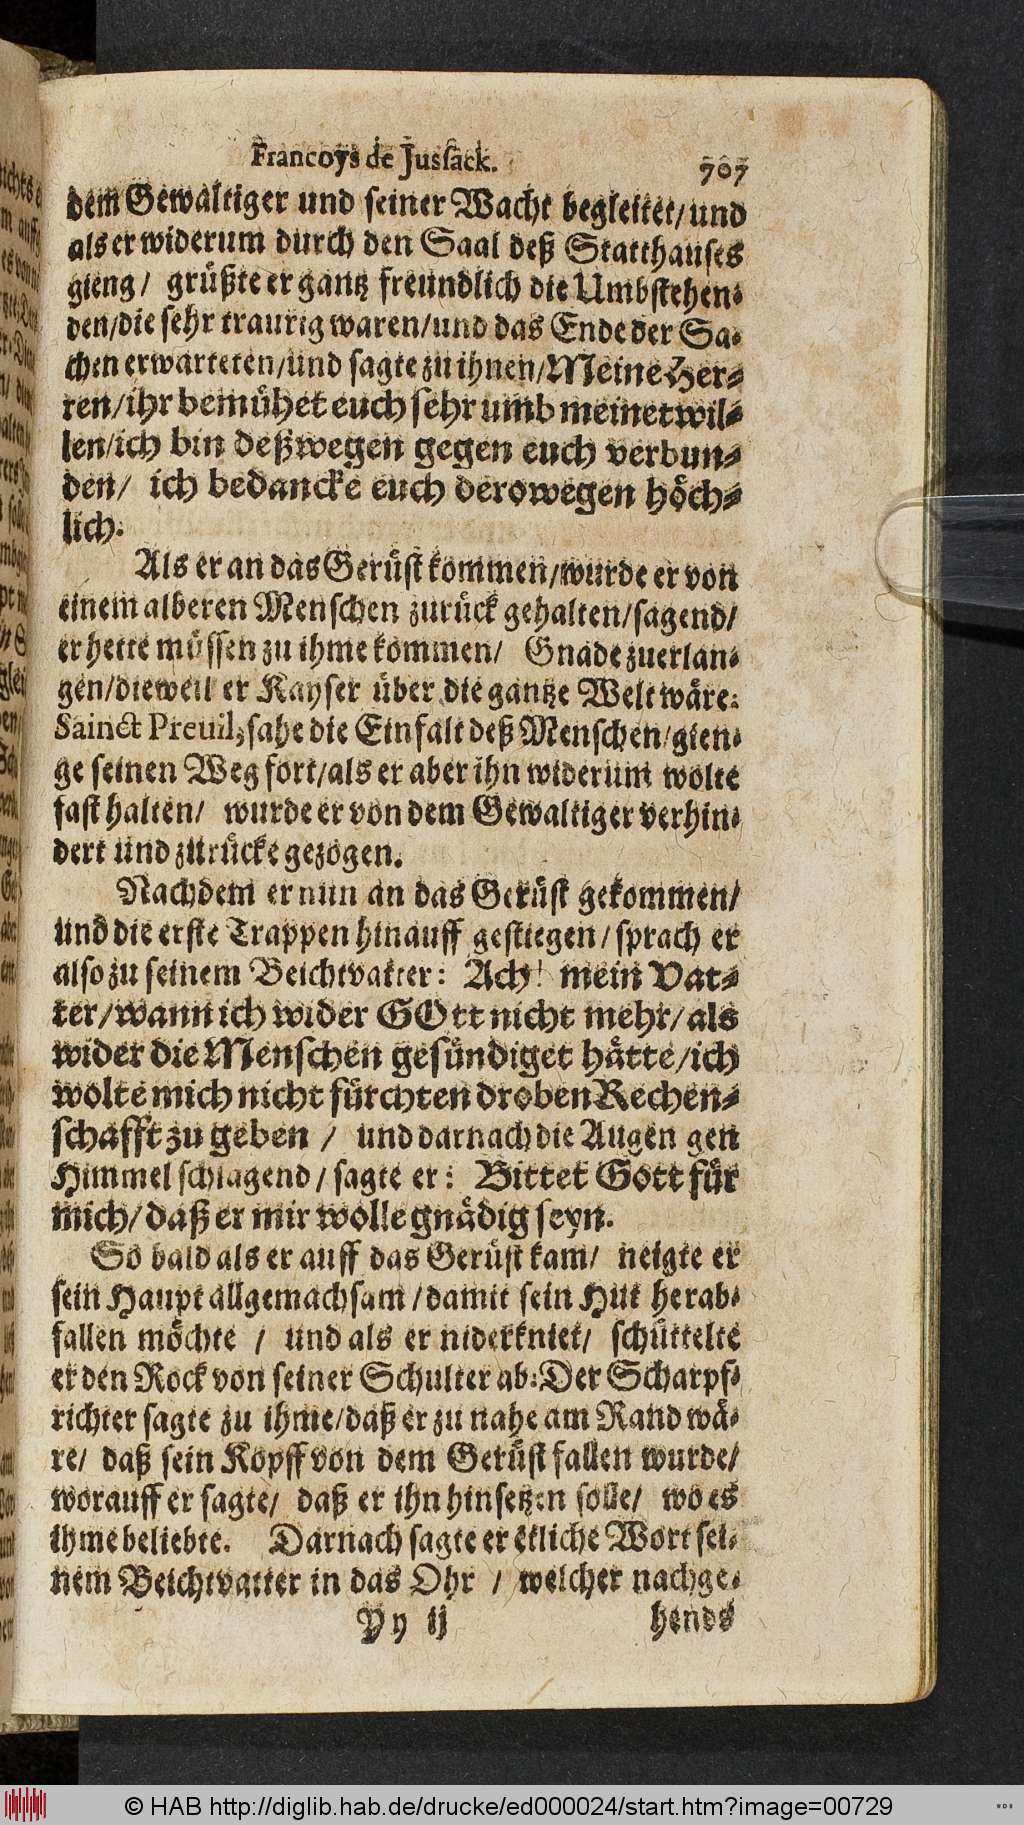 Francoys de Jussack. 707
dem Gewaltiger und seiner Wacht begleitet/ und
als er widerum durch den Saal deß Statthauses
gieng/ grüßte er gantz freundlich die Umbstehen-
den/die sehr traurig waren/und das Ende der Sa-
chen erwarteten/und sagte zu ihnen/Meine Her-
ren/ihr bemühet euch sehr umb meinetwil-
len/ich bin deßwegen gegen euch verbun-
den/ ich bedancke euch derowegen höch-
lich.
Als er an das Gerüst kommen/wurde er von
einem alberen Menschen zurück gehalten/sagend/
er hette müssen zu ihme kommen/ Gnade zuerlan-
gen/dieweil er Kayser über die gantze Welt wäre:
Sainct Preuil, sahe die Einfalt deß Menschen/gien-
ge seinen Weg fort/als er aber ihn widerum wolte
fast halten/ wurde er von dem Gewaltiger verhin-
dert und zurücke gezogen.
Nachdem er nun an das Gerüst gekommen/
und die erste Trappen hinauff gestiegen/ sprach er
also zu seinem Beichtvatter: Ach! mein Vat-
ter/wann ich wider GOtt nicht mehr/als
wider die Menschen gesündiget hätte/ich
wolte mich nicht fürchten droben Rechen-
schafft zu geben / und darnach die Augen gen
Himmel schlagend/ sagte er: Bittet Gott für
mich/daß er mir wolle gnädig seyn.
So bald als er auff das Gerüst kam/ neigte er
sein Haupt allgemachsam/damit sein Hut herab-
fallen möchte / und als er niderkniet/ schüttelte
er den Rock von seiner Schulter ab:Der Scharpf-
richter sagte zu ihme/daß er zu nahe am Rand wä-
re/ daß sein Kopff von dem Gerüst fallen wurde/
worauff er sagte/ daß er ihn hinsetzen solle/ wo es
ihme beliebte. Darnach sagte er etliche Wort sei-
nem Beichtvatter in das Ohr / welcher nachge-
Yy ij hends
© HAB http://diglib.hab.de/drucke/ed000024/start.htm?image=00729